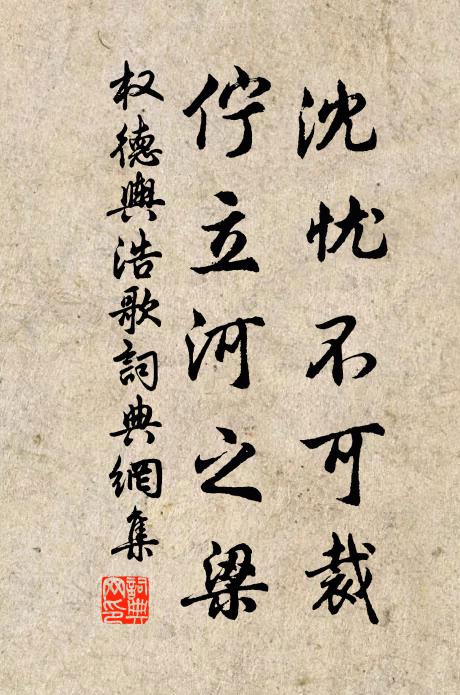 沈忧不可裁
伫立河之梁
权德舆浩歌詞典網集
詞典网印